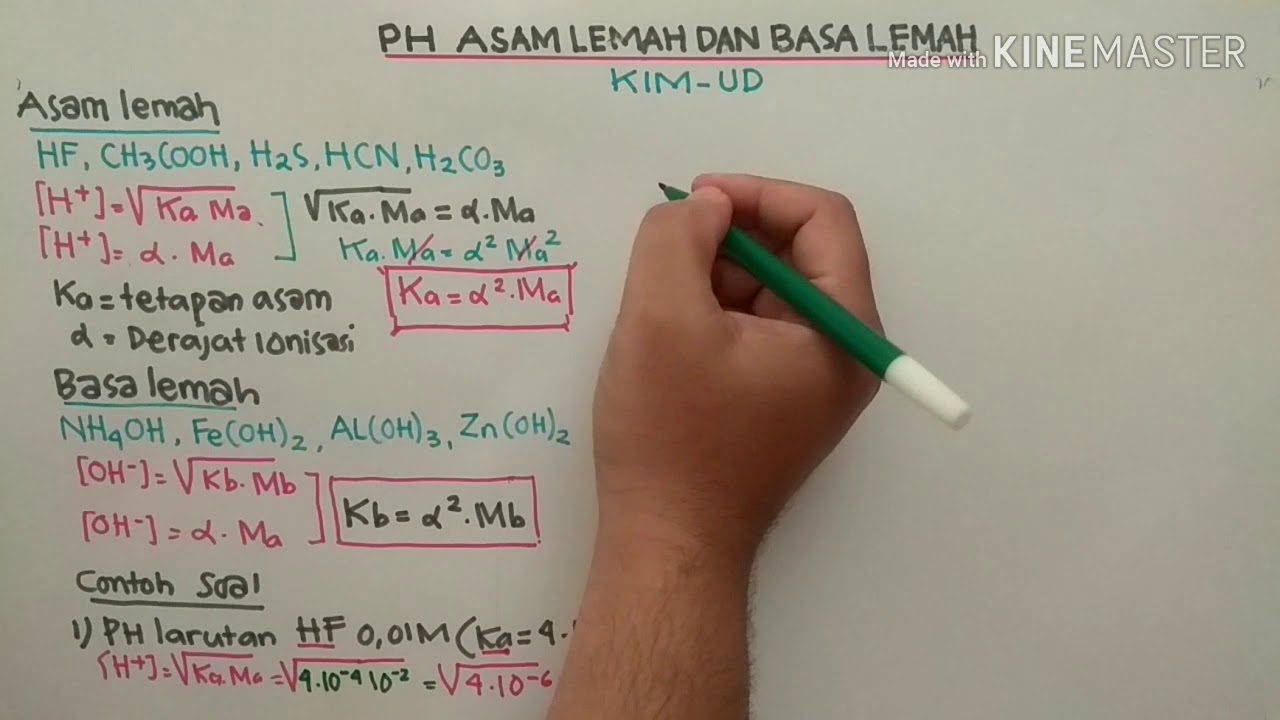 PH ASAM LEMAH DAN BASA LEMAH
Made with KINEMASTER
KIM-UD
Asam lemah
HF, CH3COOH, H2S, HCN, H2CO3
[H+]=√Ka Ma.
[H+]= α. Ma
√Ka.Ma = α.Ma
Ka.Ma = α² Ma²
Ka = α².Ma
Ka = tetapan asam
α = Derajat ionisasi
Basa lemah
NH4OH, Fe(OH)2, AL(OH)3, Zn(OH)2
[OH-]=√Kb.Mb
[OH-] = α. Ma
Kb = α².Mb
Contoh Soal
1) PH larutan HF 0,01M (Ka = 4.
[H+]=√Ka.Ma =√4.10-4 10-2 = √4.10-6